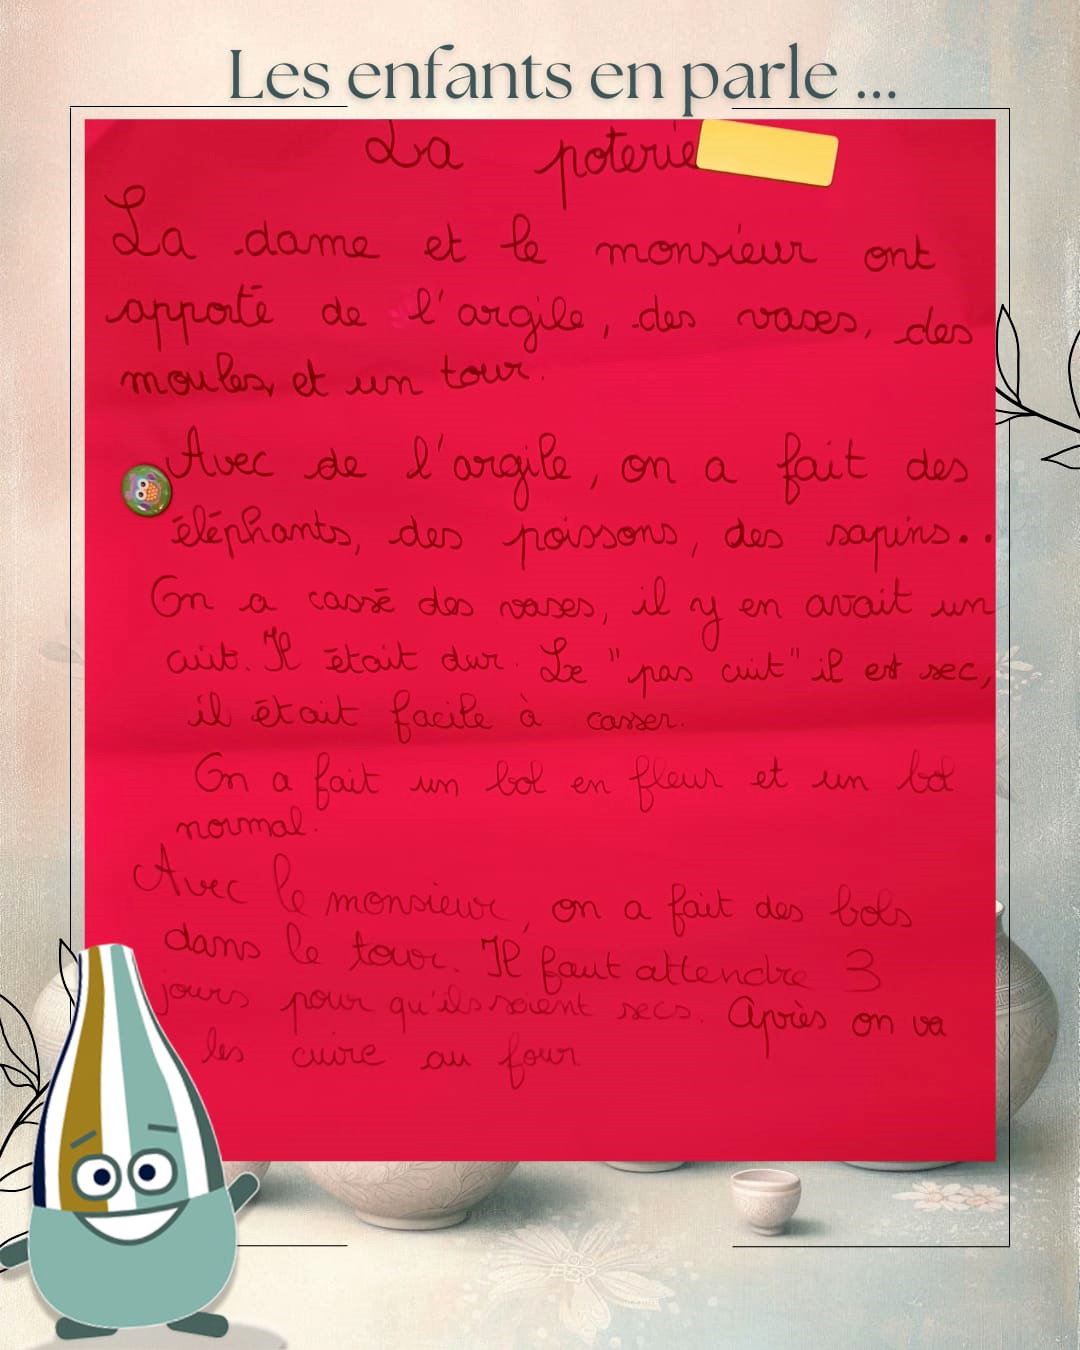 Les enfants en parle ...
La poterie
La dame et le monsieur ont
apporté de l'argile, des vases, des
moules, et un tour.
Avec de l'argile, on a fait des
éléphants, des poissons, des sapins..
On a cassé des vases, il y en avait un
cuit. Il était dur. Le "pas cuit" il est sec,
il était facile à casser.
On a fait un bol en fleur et un bol
normal.
Avec le monsieur, on a fait des bols
dans le tour. Il faut attendre 3
jours pour qu'ils soient secs. Après on va
les cuire au four